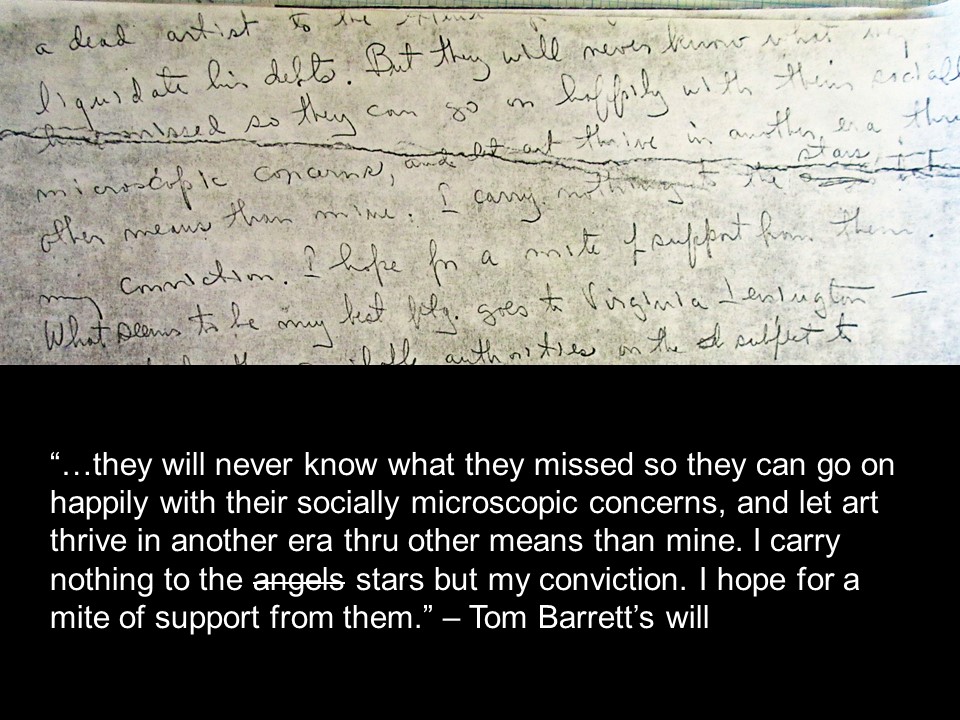 a dead artist to the
liquidate his debts. But they will never know what they
missed so they can go on happily with their socially
microscopic concerns, and let art thrive in another era thru
other means than mine. I carry nothing to the stars but
my conviction. I hope for a mite of support from them.
What seems to be my best ptg. goes to Virginia Lexington —
authorities on the subject to
“…they will never know what they missed so they can go on
happily with their socially microscopic concerns, and let art
thrive in another era thru other means than mine. I carry
nothing to the angels stars but my conviction. I hope for a
mite of support from them.” – Tom Barrett’s will